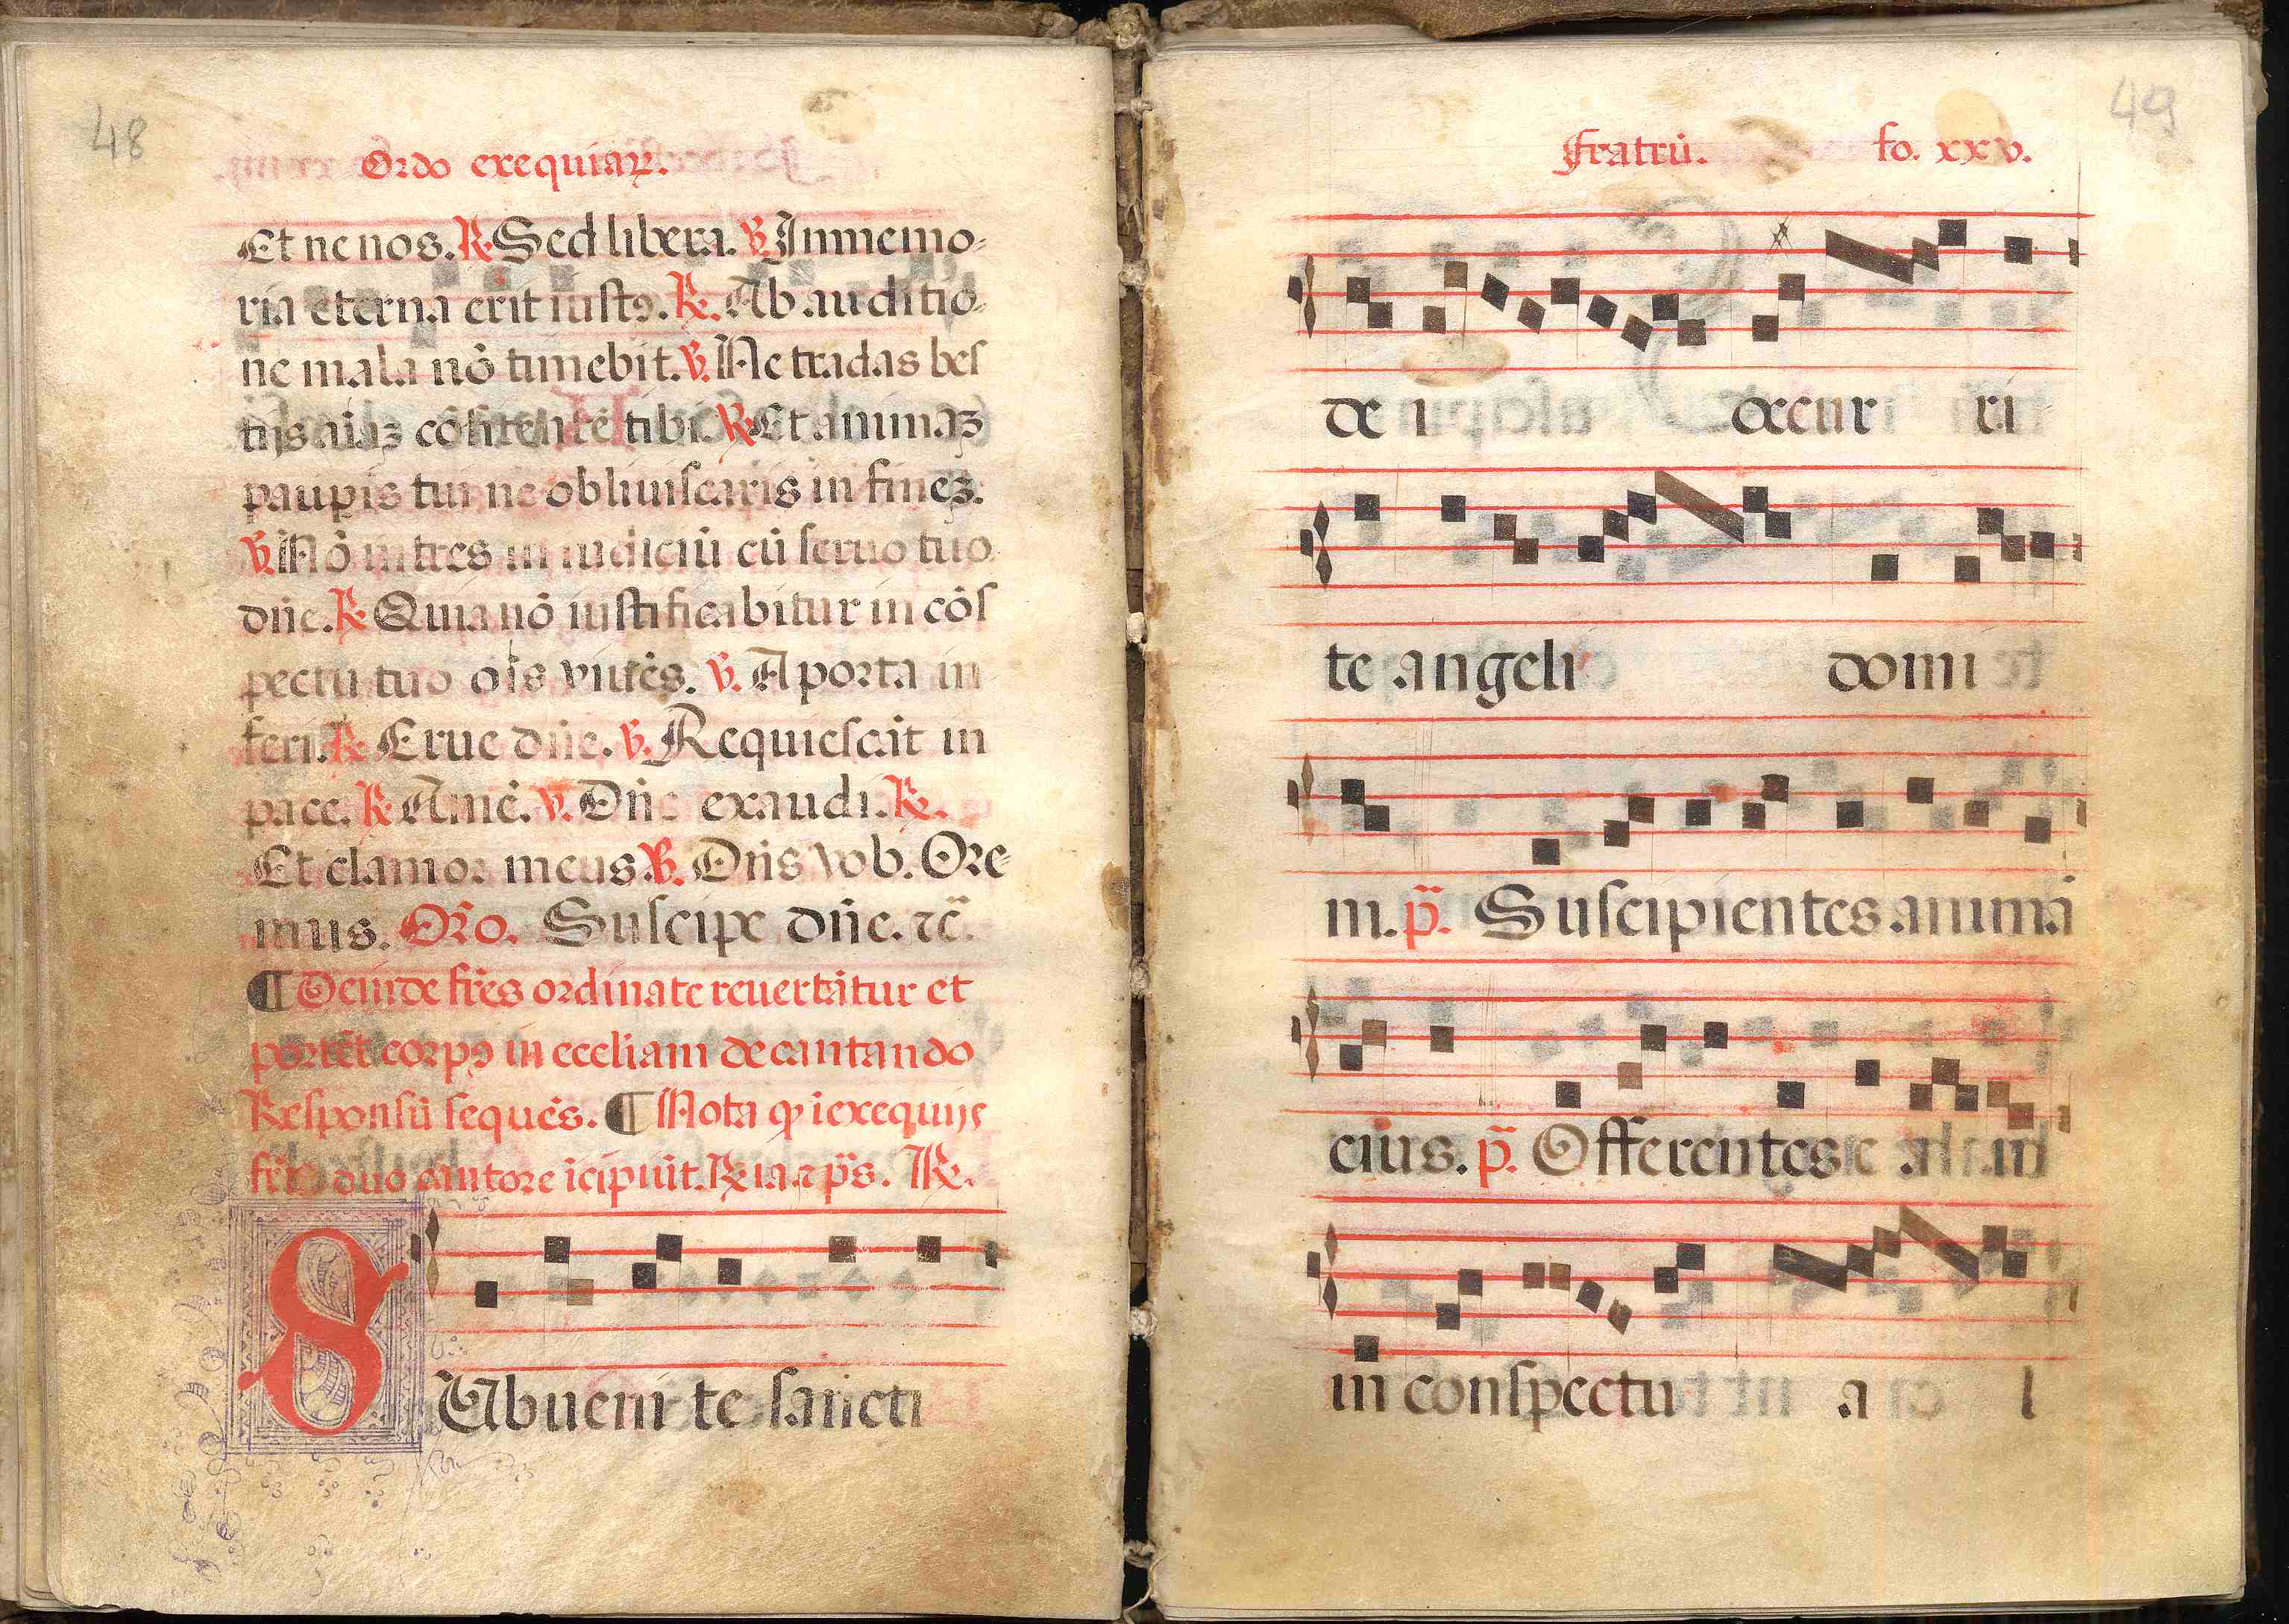 48
Ordo exequiaꝝ.
Et ne nos. ℟. Sed libera. ℣. In memo-
ria eterna erit iustꝰ. ℟. Ab auditio-
ne mala nō timebit. ℣. Ne tradas bes
tijs aiaꝫ cōfitentē tibi. ℟. Et animaꝫ
paupis tui ne obliuiscaris in fineꝫ.
℣. Nō intres in iudiciū cū seruo tuo
dn̄e. ℟. Quia nō iustificabitur in cōs
pectu tuo oīs viuēs. ℣. A porta in
feri. ℟. Erue dn̄e. ℣. Requiescat in
pace. ℟. Amē. ℣. Dn̄e exaudi. ℟.
Et clamor meus. ℣. Dn̄s vob. Ore-
mus. Or̄o. Suscipe dn̄e. ⁊c̄.
¶ Deinde fr̄es ordinate reuertātur et
portēt corpꝰ in eccliam decantando
Responsū sequēs. ¶ Nota ꝙ i exequijs
duo cantore īcipiūt. ℟. ⁊ p̄s. ℟.
SUbueni te sancti
49
fratrū. fo. xxv.
de i occur ri
te angeli domi
ni. p̄. Suscipientes animā
eius. p̄. Offerentes e
in conspectu a l